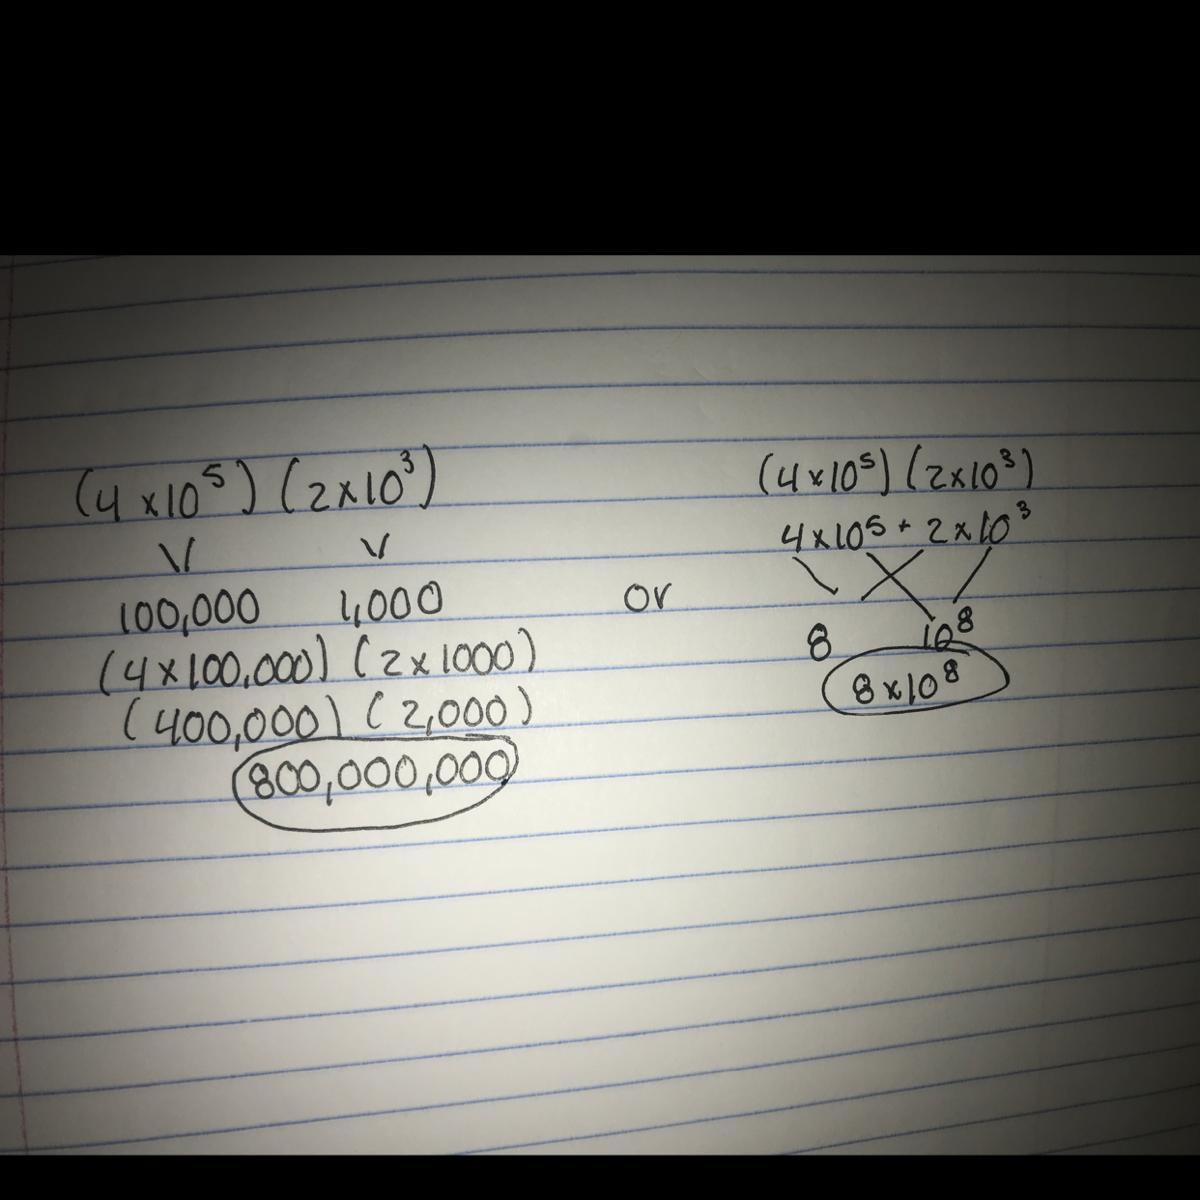 (4×10⁵) (2×10³)
100,000 1,000
(4×100,000) (2×1000)
(400,000) (2,000)
800,000,000
or
(4×10⁵) (2×10³)
4×10⁵ + 2×10³
8 10⁸
8×10⁸